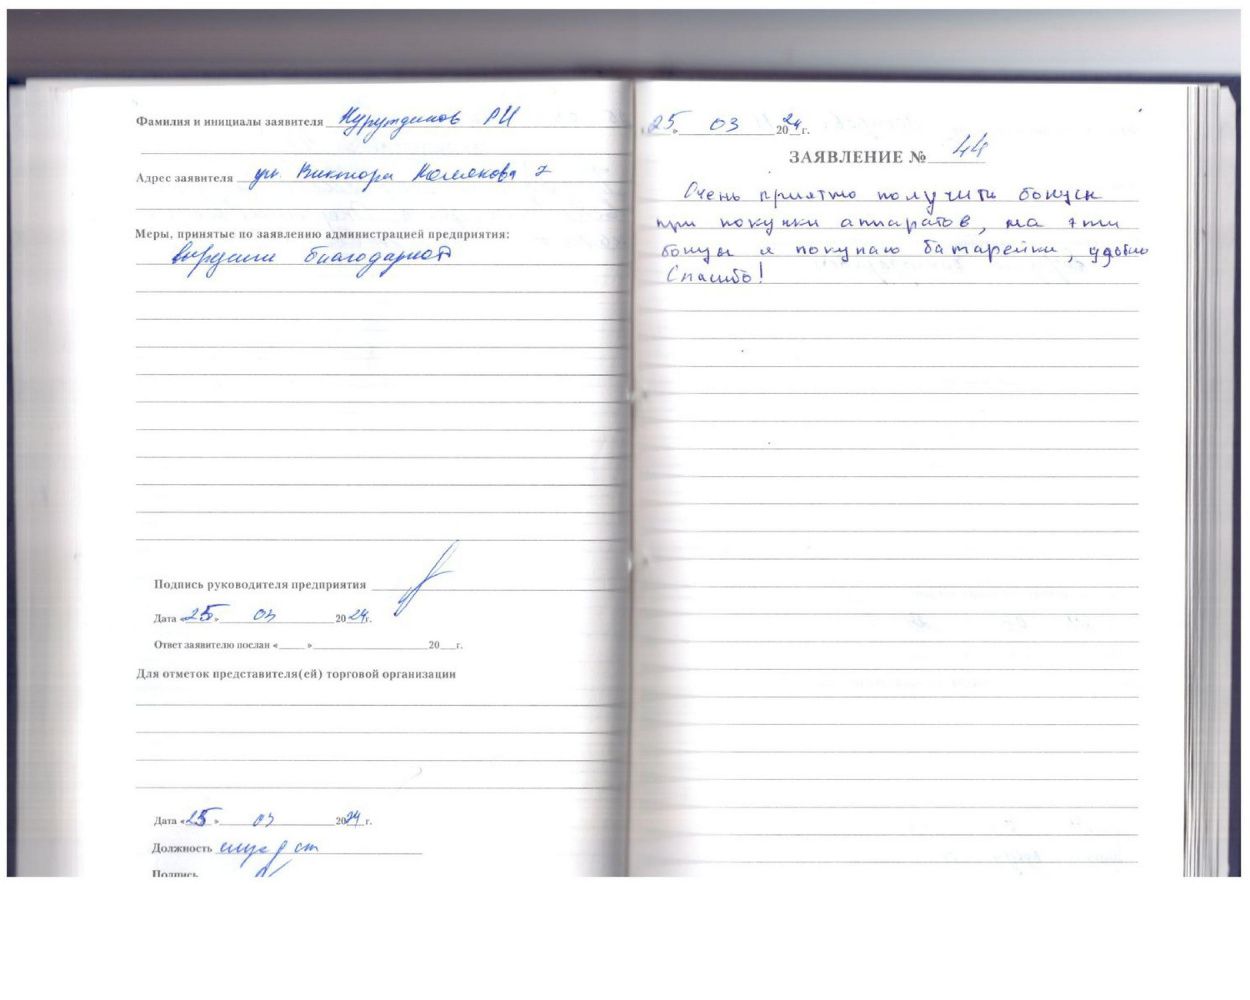 Фамилия и инициалы заявителя Нурутдинов РИ
Адрес заявителя ул. Виктора 7
Меры, принятые по заявлению администрацией предприятия:
благодарность
Подпись руководителя предприятия
Дата «25» 03 2024г.
Ответ заявителю послан « » 20 г.
Для отметок представителя(ей) торговой организации
Дата «25» 03 2024г.
Должность
Подпись
25 » 03 2024г.
ЗАЯВЛЕНИЕ № 44
Очень приятно получить бонусы
при покупки аппаратов, на эти
бонусы я покупаю батарейки, удобно
Спасибо!